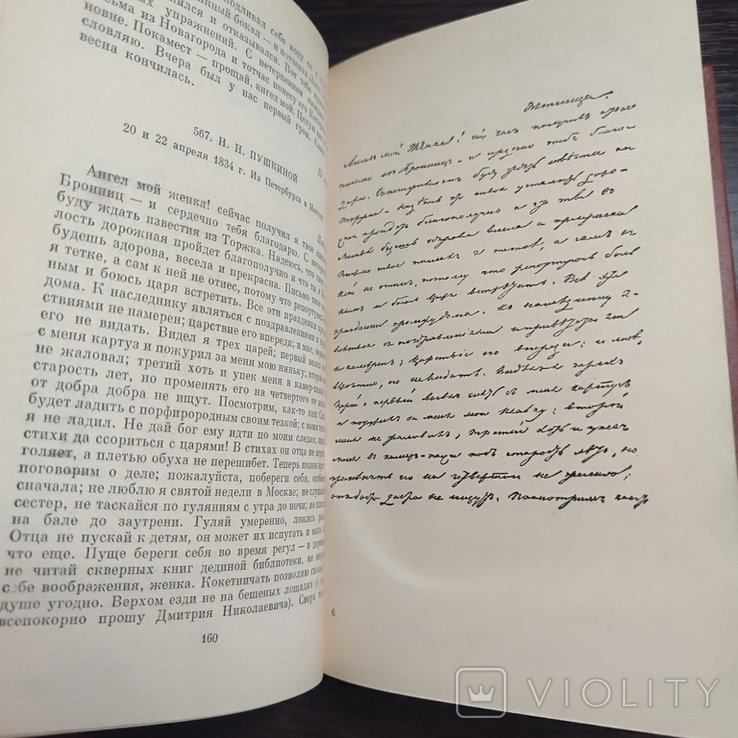 подливал себе воду то в
нный бокал — и потчевал
нился и отказывался. Вот тебе
их упражнений. С нетерпением
сьма из Новагорода и тотчас понесу его
новне. Покамест — прощай, ангел мой. Целую
словляю. Вчера был у нас первый гром.
весна кончилась.
567. Н. Н. ПУШКИНОЙ
20 и 22 апреля 1834 г. Из Петербурга в Москву
Пятница.
Ангел мой женка! сейчас получил я твое
Бронниц — и сердечно тебя благодарю. С
буду ждать известия из Торжка. Надеюсь, что
лость дорожная пройдет благополучно и что ты в
будешь здорова, весела и прекрасна. Письмо твое
я тетке, а сам к ней не отнес, потому что репортуюсь
ным и боюсь царя встретить. Все эти праздники
дома. К наследнику являться с поздравлениями и
ствиями не намерен; царствие его впереди; и мне,
его не видать. Видел я трех царей: первый велел
с меня картуз и пожурил за меня мою няньку; второй
не жаловал; третий хоть и упек меня в камер
старость лет, но променять его на четвертого не
от добра добра не ищут. Посмотрим, как-то наш
будет ладить с порфирородным своим тезкой; с моим
я не ладил. Не дай бог ему идти по моим следам,
стихи да ссориться с царями! В стихах он отца не
голяет, а плетью обуха не перешибет. Теперь полно
поговорим о деле; пожалуйста, побереги себя,
сначала; не люблю я святой недели в Москве; не
сестер, не таскайся по гуляниям с утра до ночи; не
на бале до заутрени. Гуляй умеренно, ложись
Отца не пускай к детям, он может их испугать и мало
что еще. Пуще береги себя во время регул — в
не читай скверных книг дединой библиотеки, не
себе воображения, женка. Кокетничать позволяю
душе угодно. Верхом езди не на бешеных лошадях (о
всепокорно прошу Дмитрия Николаевича). Сверх
160
Пятница.
Ангел мой Женка! сей час получил я твое
письмо из Бронниц — и сердечно тебя благо-
дарю. С нетерпением буду ждать известия из
Торжка. Надеюсь что твоя усталость доро-
жная пройдет благополучно и что ты в
Москве будешь здорова весела и прекрасна
Письмо твое послал я тетке, а сам к ней
не отнес, потому что репортуюсь боль-
ным и боюсь царя встретить. Все эти
праздники просижу дома. К наследнику я-
вляться с поздравлениями и приветствиями
не намерен; Царствие его впереди; и мне,
вероятно, его не видать. Видел я трех
Царей: первый велел снять с меня картуз
и пожурил за меня мою няньку; второй
меня не жаловал; третий хоть и упек
меня в камер-пажи под старость лет, но
променять его на четвертого не желаю;
от добра добра не ищут. Посмотрим как-то
VIOLITY